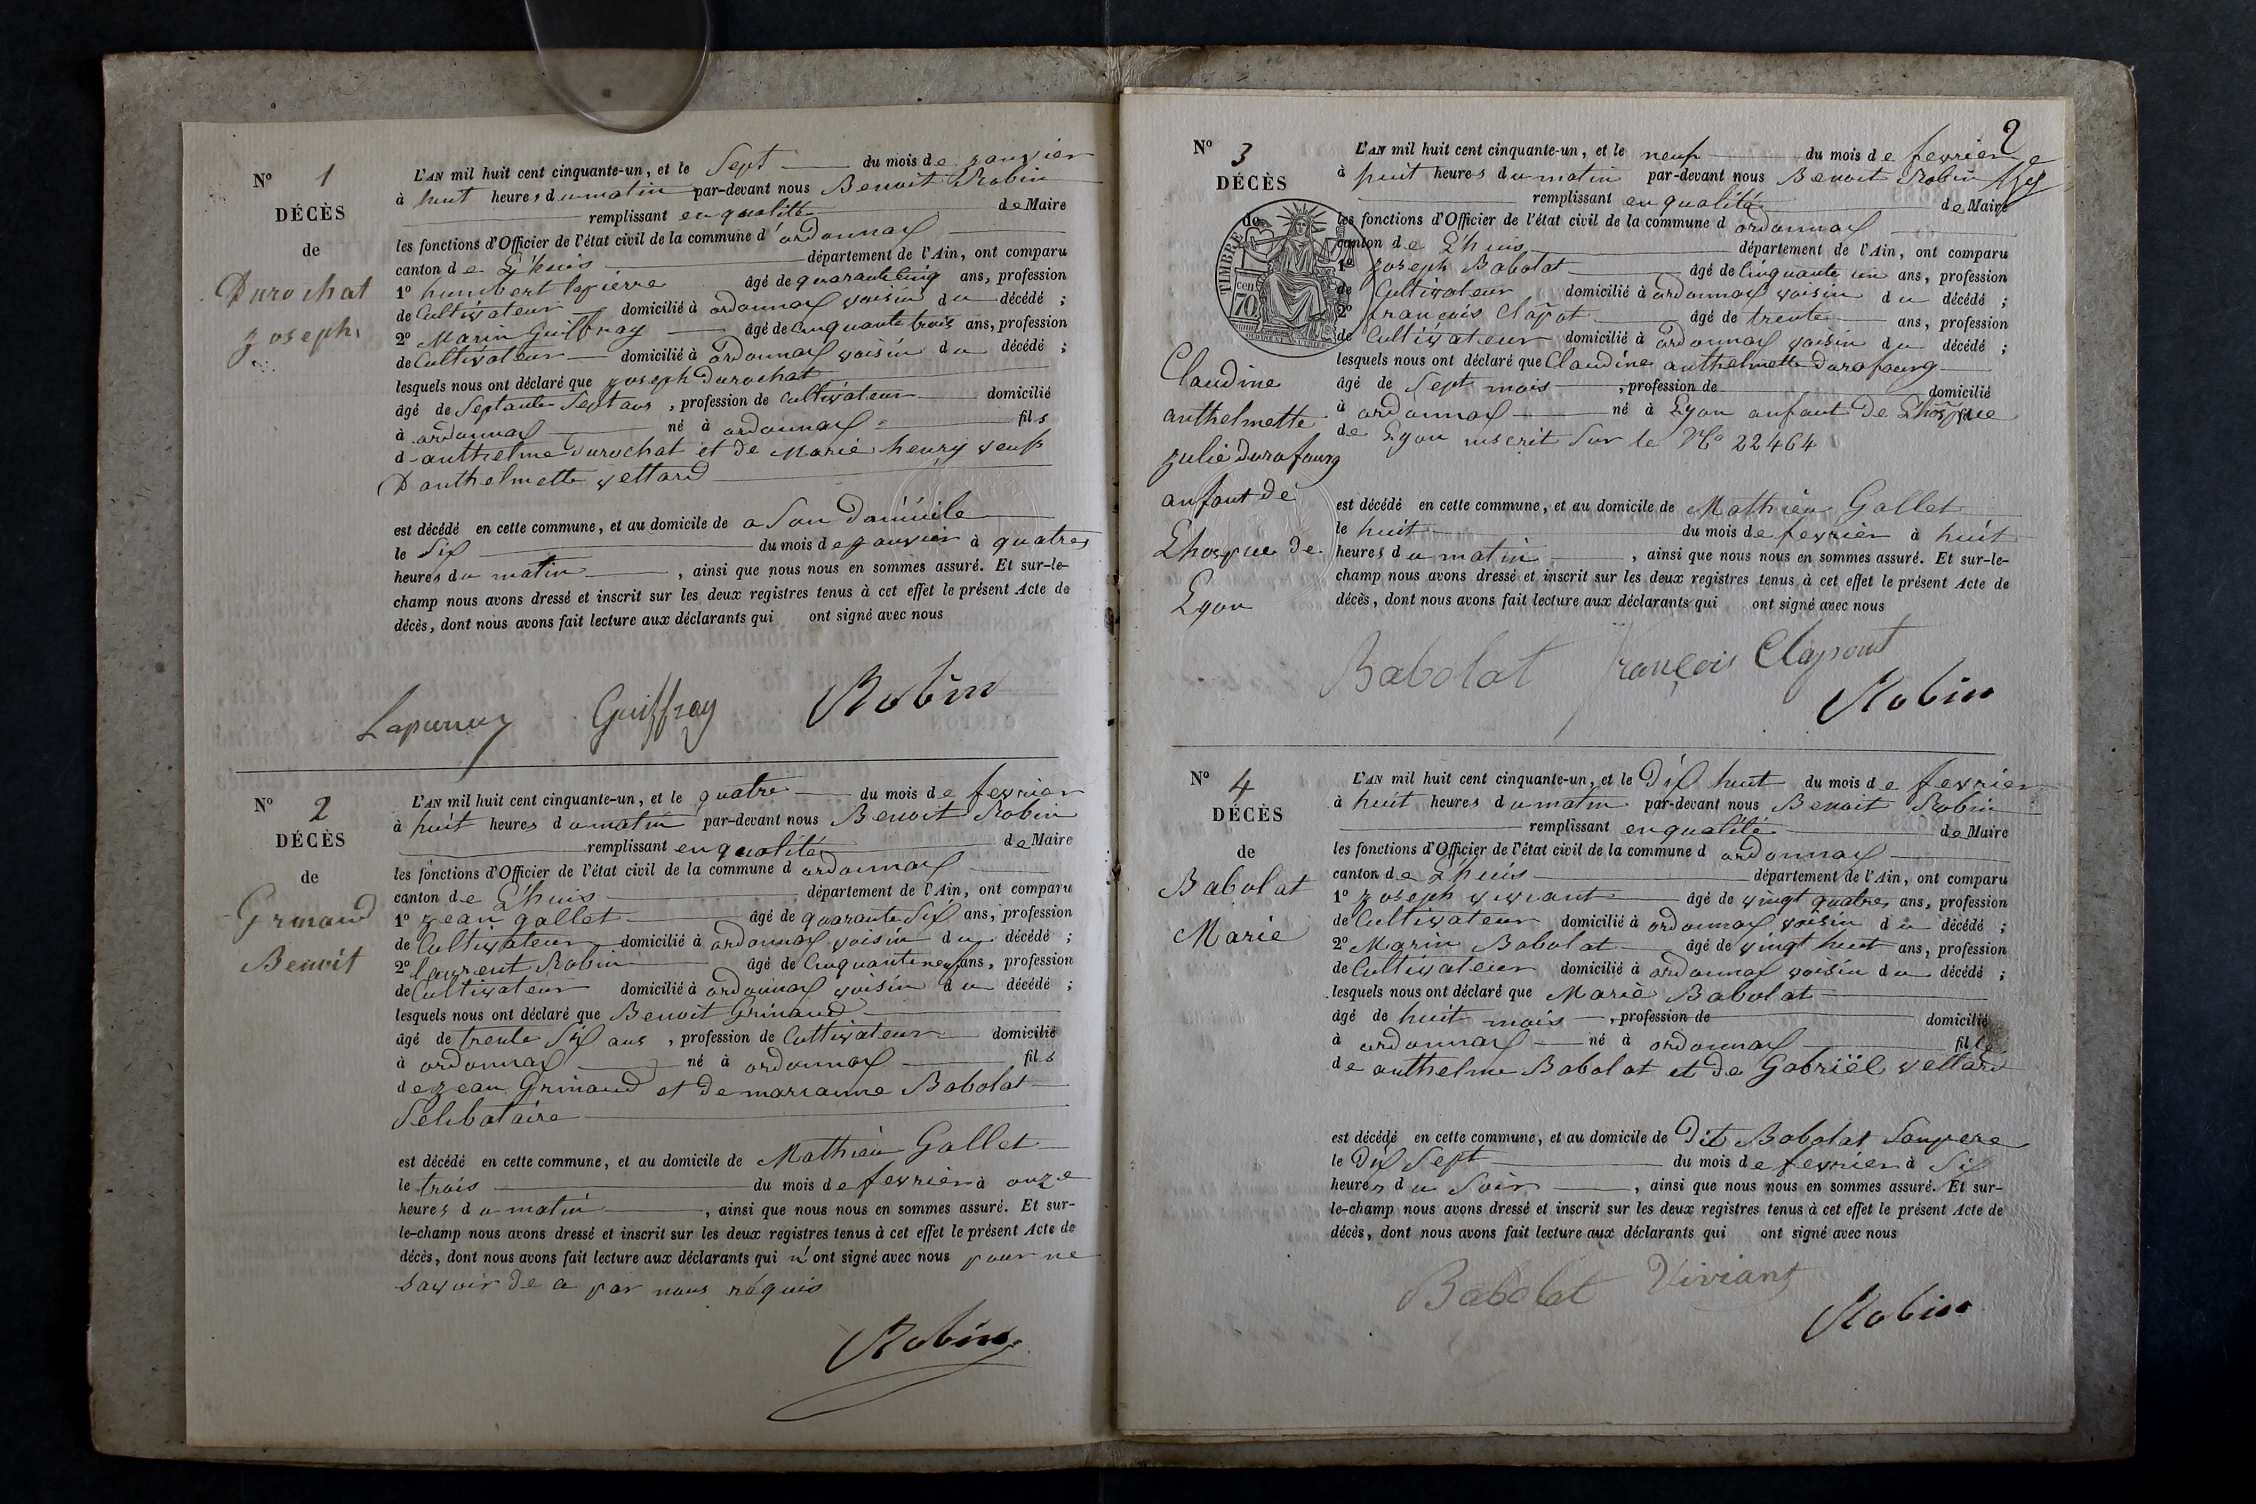 N° 1
DÉCÈS
de
Durochat
Joseph
L'AN mil huit cent cinquante-un, et le Sept du mois de janvier
à huit heures du matin par-devant nous Benoit Robin
remplissant en qualité de Maire
les fonctions d'Officier de l'état civil de la commune d'ordonnax
canton de L'huis département de l'Ain, ont comparu
1° humbert lapierre âgé de quarante cinq ans, profession
de Cultivateur domicilié à ordonnax voisin du décédé ;
2° Marin Guiffray âgé de cinquante trois ans, profession
de Cultivateur domicilié à ordonnax voisin du décédé ;
lesquels nous ont déclaré que joseph Durochat
âgé de Septante Sept ans, profession de Cultivateur domicilié
à ordonnax né à ordonnax fils
d anthelme Durochat et de Marie henry veuf
D'anthelmette vettard
est décédé en cette commune, et au domicile de a Son Domicile
le Six du mois de janvier à quatres
heures du matin, ainsi que nous nous en sommes assuré. Et sur-le-
champ nous avons dressé et inscrit sur les deux registres tenus à cet effet le présent Acte de
décès, dont nous avons fait lecture aux déclarants qui ont signé avec nous
Guiffray Robin
N° 2
DÉCÈS
de
Grinand
Benoit
L'AN mil huit cent cinquante-un, et le quatre du mois de fevrier
à huit heures du matin par-devant nous Benoit Robin
remplissant en qualité de Maire
les fonctions d'Officier de l'état civil de la commune d ordonnax
canton de L'huis département de l'Ain, ont comparu
1° jean gallet âgé de quarante Six ans, profession
de Cultivateur domicilié à ordonnax voisin du décédé ;
2° laurent Robin âgé de Cinquante neuf ans, profession
de Cultivateur domicilié à ordonnax voisin du décédé ;
lesquels nous ont déclaré que Benoit Grinand
âgé de trente Six ans, profession de Cultivateur domicilié
à ordonnax né à ordonnax fils
de jean Grinand et de marianne Babolat
Selibataire
est décédé en cette commune, et au domicile de Mathieu Gallet
le trois du mois de fevrier à onze
heures du matin, ainsi que nous nous en sommes assuré. Et sur-
le-champ nous avons dressé et inscrit sur les deux registres tenus à cet effet le présent Acte de
décès, dont nous avons fait lecture aux déclarants qui n'ont signé avec nous pour ne
savoir de a par nous réquis
Robin
2
N° 3
DÉCÈS
de
TIMBRE
70 cen
Claudine
anthelmette
julie Durafourg
anfant de
L'hospice de
Lyon
L'AN mil huit cent cinquante-un, et le neuf du mois de fevrier
à huit heures du matin par-devant nous Benoit Robin
remplissant en qualité de Maire
les fonctions d'Officier de l'état civil de la commune d ordonnax
canton de L'huis département de l'Ain, ont comparu
1° joseph Babolat âgé de Cinquante un ans, profession
de Cultivateur domicilié à ordonnax voisin du décédé ;
2° françois Clapot âgé de trente ans, profession
de Cultivateur domicilié à ordonnax voisin du décédé ;
lesquels nous ont déclaré que Claudine anthelmette Durafourg
âgé de Sept mois, profession de domicilié
à ordonnax né à Lyon anfant de L'hospice
de Lyon inscrit Sur le N° 22464
est décédé en cette commune, et au domicile de Mathieu Gallet
le huit du mois de fevrier à huit
heures du matin, ainsi que nous nous en sommes assuré. Et sur-le-
champ nous avons dressé et inscrit sur les deux registres tenus à cet effet le présent Acte de
décès, dont nous avons fait lecture aux déclarants qui ont signé avec nous
Babolat françois Clapout
Robin
N° 4
DÉCÈS
de
Babolat
Marie
L'AN mil huit cent cinquante-un, et le Dix huit du mois de fevrier
à huit heures du matin par-devant nous Benoit Robin
remplissant en qualité de Maire
les fonctions d'Officier de l'état civil de la commune d ordonnax
canton de L'huis département de l'Ain, ont comparu
1° joseph viviant âgé de vingt quatre ans, profession
de Cultivateur domicilié à ordonnax voisin du décédé ;
2° Marin Babolat âgé de vingt huit ans, profession
de Cultivateur domicilié à ordonnax voisin du décédé ;
lesquels nous ont déclaré que Marie Babolat
âgé de huit mois, profession de domicilié
à ordonnax né à ordonnax fille
de anthelme Babolat et de Gabriël vettard
est décédé en cette commune, et au domicile de Dit Babolat Son pere
le Dix Sept du mois de fevrier à Six
heures du Soir, ainsi que nous nous en sommes assuré. Et sur-
le-champ nous avons dressé et inscrit sur les deux registres tenus à cet effet le présent Acte de
décès, dont nous avons fait lecture aux déclarants qui ont signé avec nous
Babolat Viviant
Robin